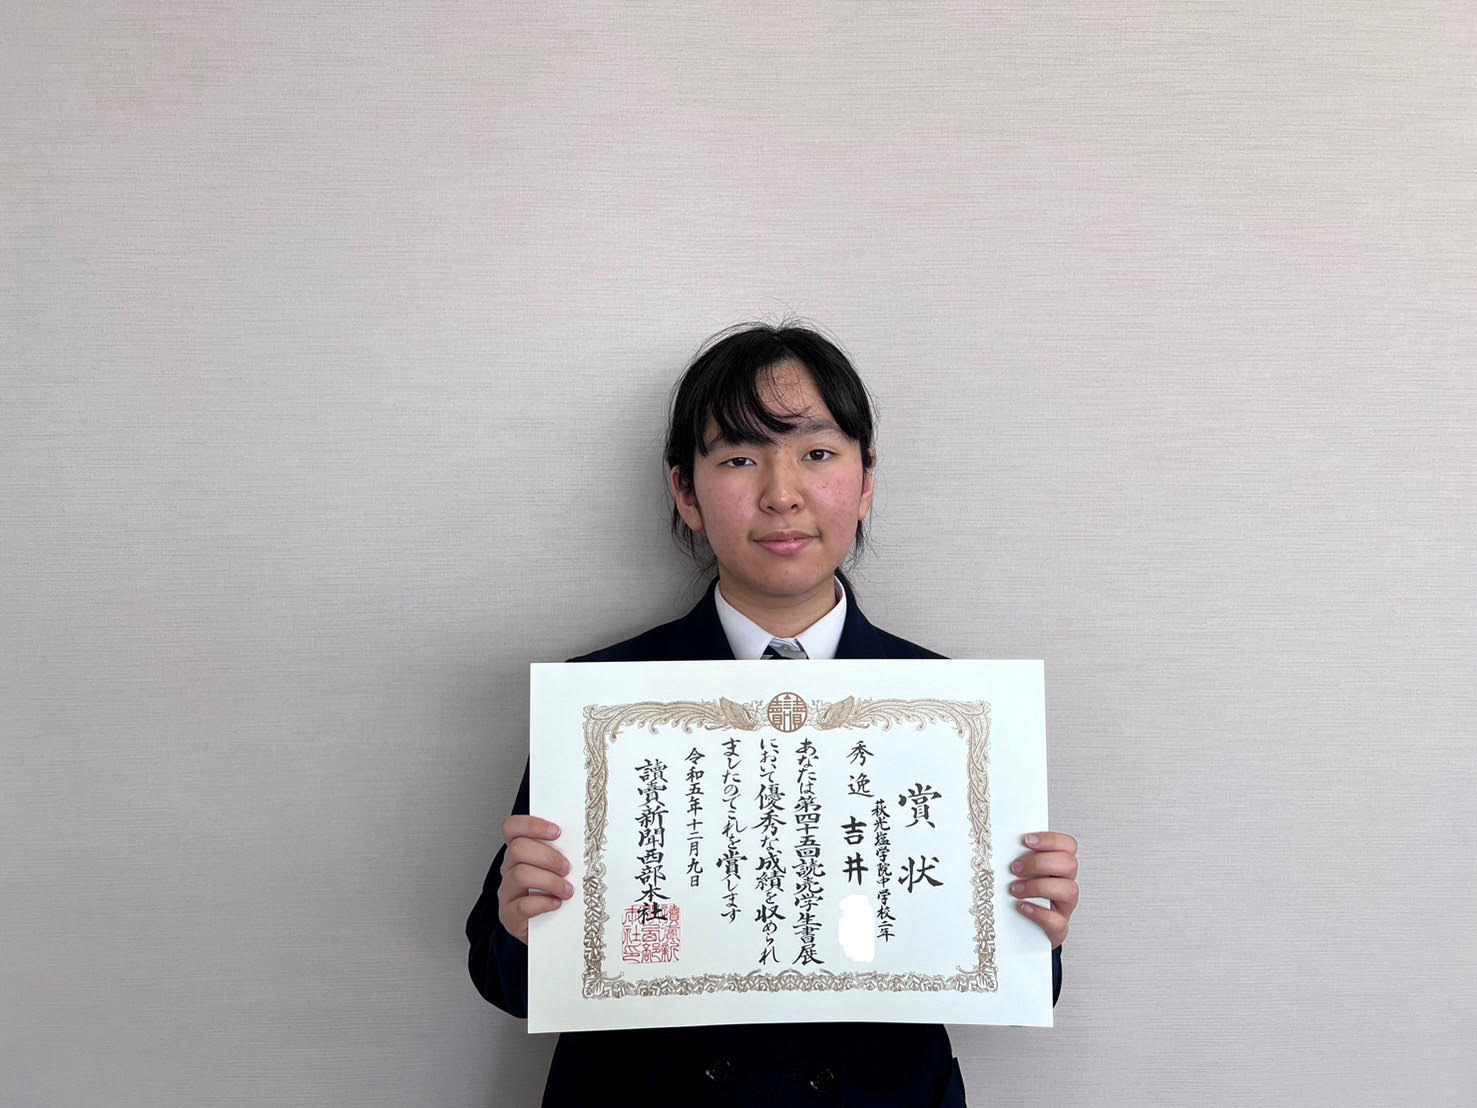 賞状
秀逸
萩光塩学院中学校二年
吉井
あなたは第四十五回読売学生書展
において優秀な成績を収められ
ましたのでこれを賞します
令和五年十二月九日
讀賣新聞西部本社
讀賣新
聞西部
本社印